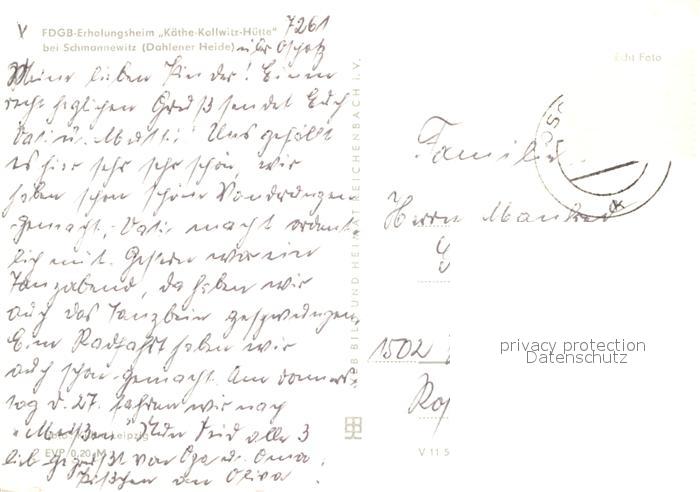 FDGB-Erholungsheim „Käthe-Kollwitz-Hütte" 7261
bei Schmannewitz (Dahlener Heide) über Oschatz
Meine lieben Kinder! Einen
recht herzlichen Gruß sendet Euch
Vati u. Mutti! Uns gefällt
es hier sehr sehr schön, wir
haben schon schöne Wanderungen
gemacht, Vati macht ordent-
lich mit. Gestern war ein
Tanzabend, da haben wir
auch das Tanzbein geschwungen,
Eine Radfahrt haben wir
auch schon gemacht. Am Donners-
tag d. 27. fahren wir nach
"Meißen" Nun seid alle 3
lieb gegrüßt von Opa u. Oma.
Küßchen an Oliva.
EVP 0,20 M
Echt Foto
BILD UND HEIMAT REICHENBACH I. V.
Familie
Herrn
1502
V 11 5
privacy protection
Datenschutz